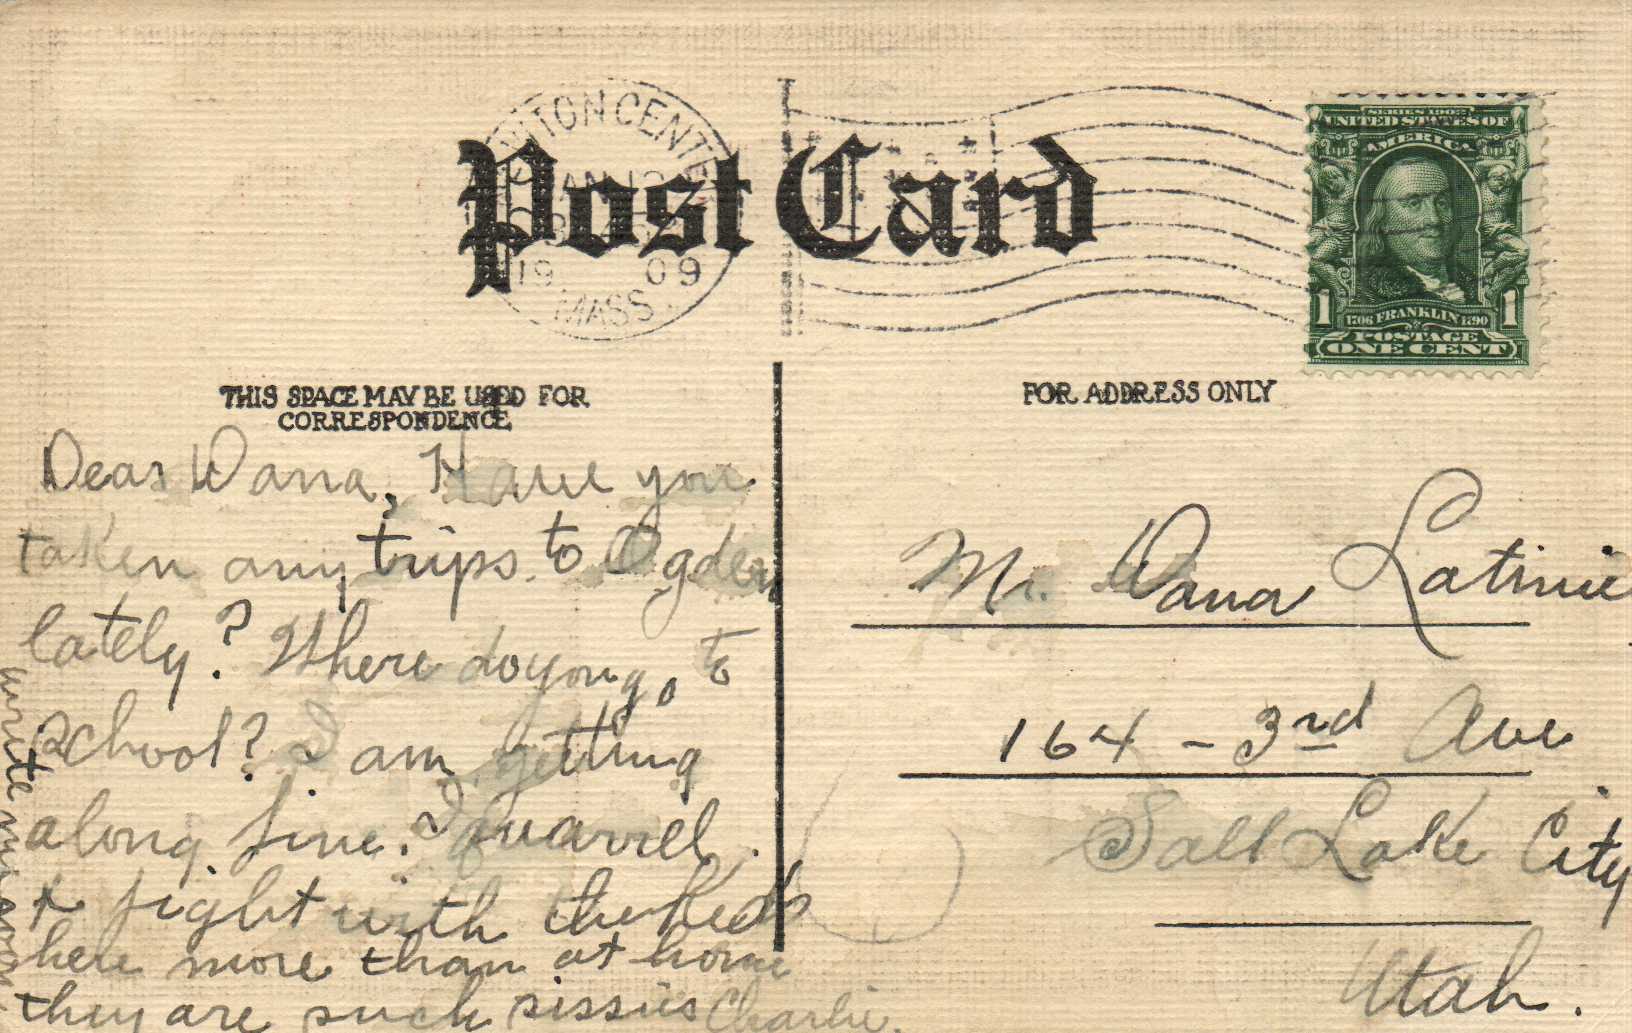 NEWTON CENTER
JAN 12
1909
MASS.
Post Card
SERIES 1902
UNITED STATES OF
AMERICA
1 1
1706 FRANKLIN 1790
POSTAGE
ONE CENT
THIS SPACE MAY BE USED FOR
CORRESPONDENCE
Dear Dana, Have you
taken any trips to Ogden
lately? Where do you go to
school? I am getting
along fine. I quarrel
& fight with the Keds
here more than at home
they are such sissies Charlie.
write me soon
FOR ADDRESS ONLY
Mr. Dana
164 - 3rd Ave
Salt Lake City
Utah.